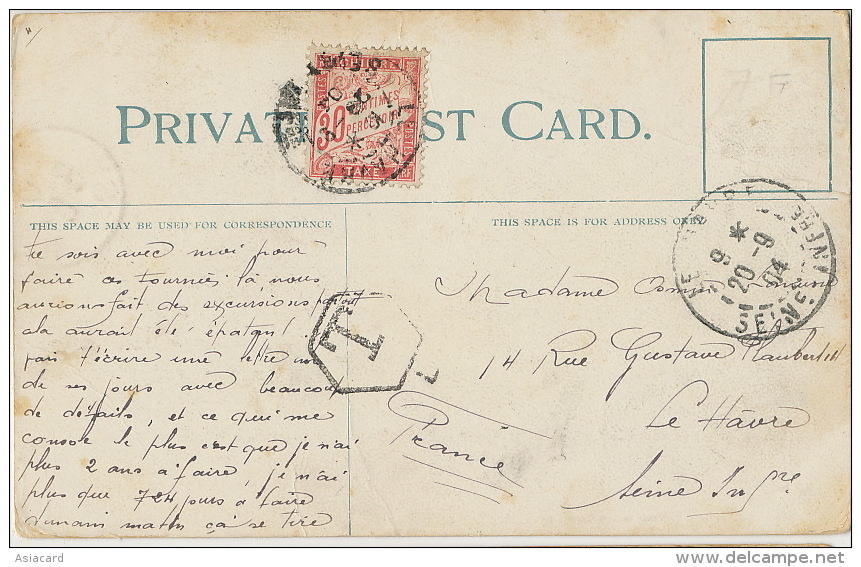 PRIVATE POST CARD.
THIS SPACE MAY BE USED FOR CORRESPONDENCE
THIS SPACE IS FOR ADDRESS ONLY
30 CENTIMES
PERCEVOIR
TAXE
T
LE HAVRE
9 * 20-9 04
SEINE
sois avec moi pour
faire ces tournées là, nous
aurions fait des excursions partout
cela aurait été épatant
t'écrire une
de ses jours avec beaucoup
de détails, et ce qui me
console le plus c'est que je n'ai
plus 2 ans à faire, je n'ai
plus que 724 jours à faire
matin ça se tire
Madame
14 Rue Gustave Flaubert 14
Le Hâvre
Seine Infre
France
Asiacard
www.delcampe.net